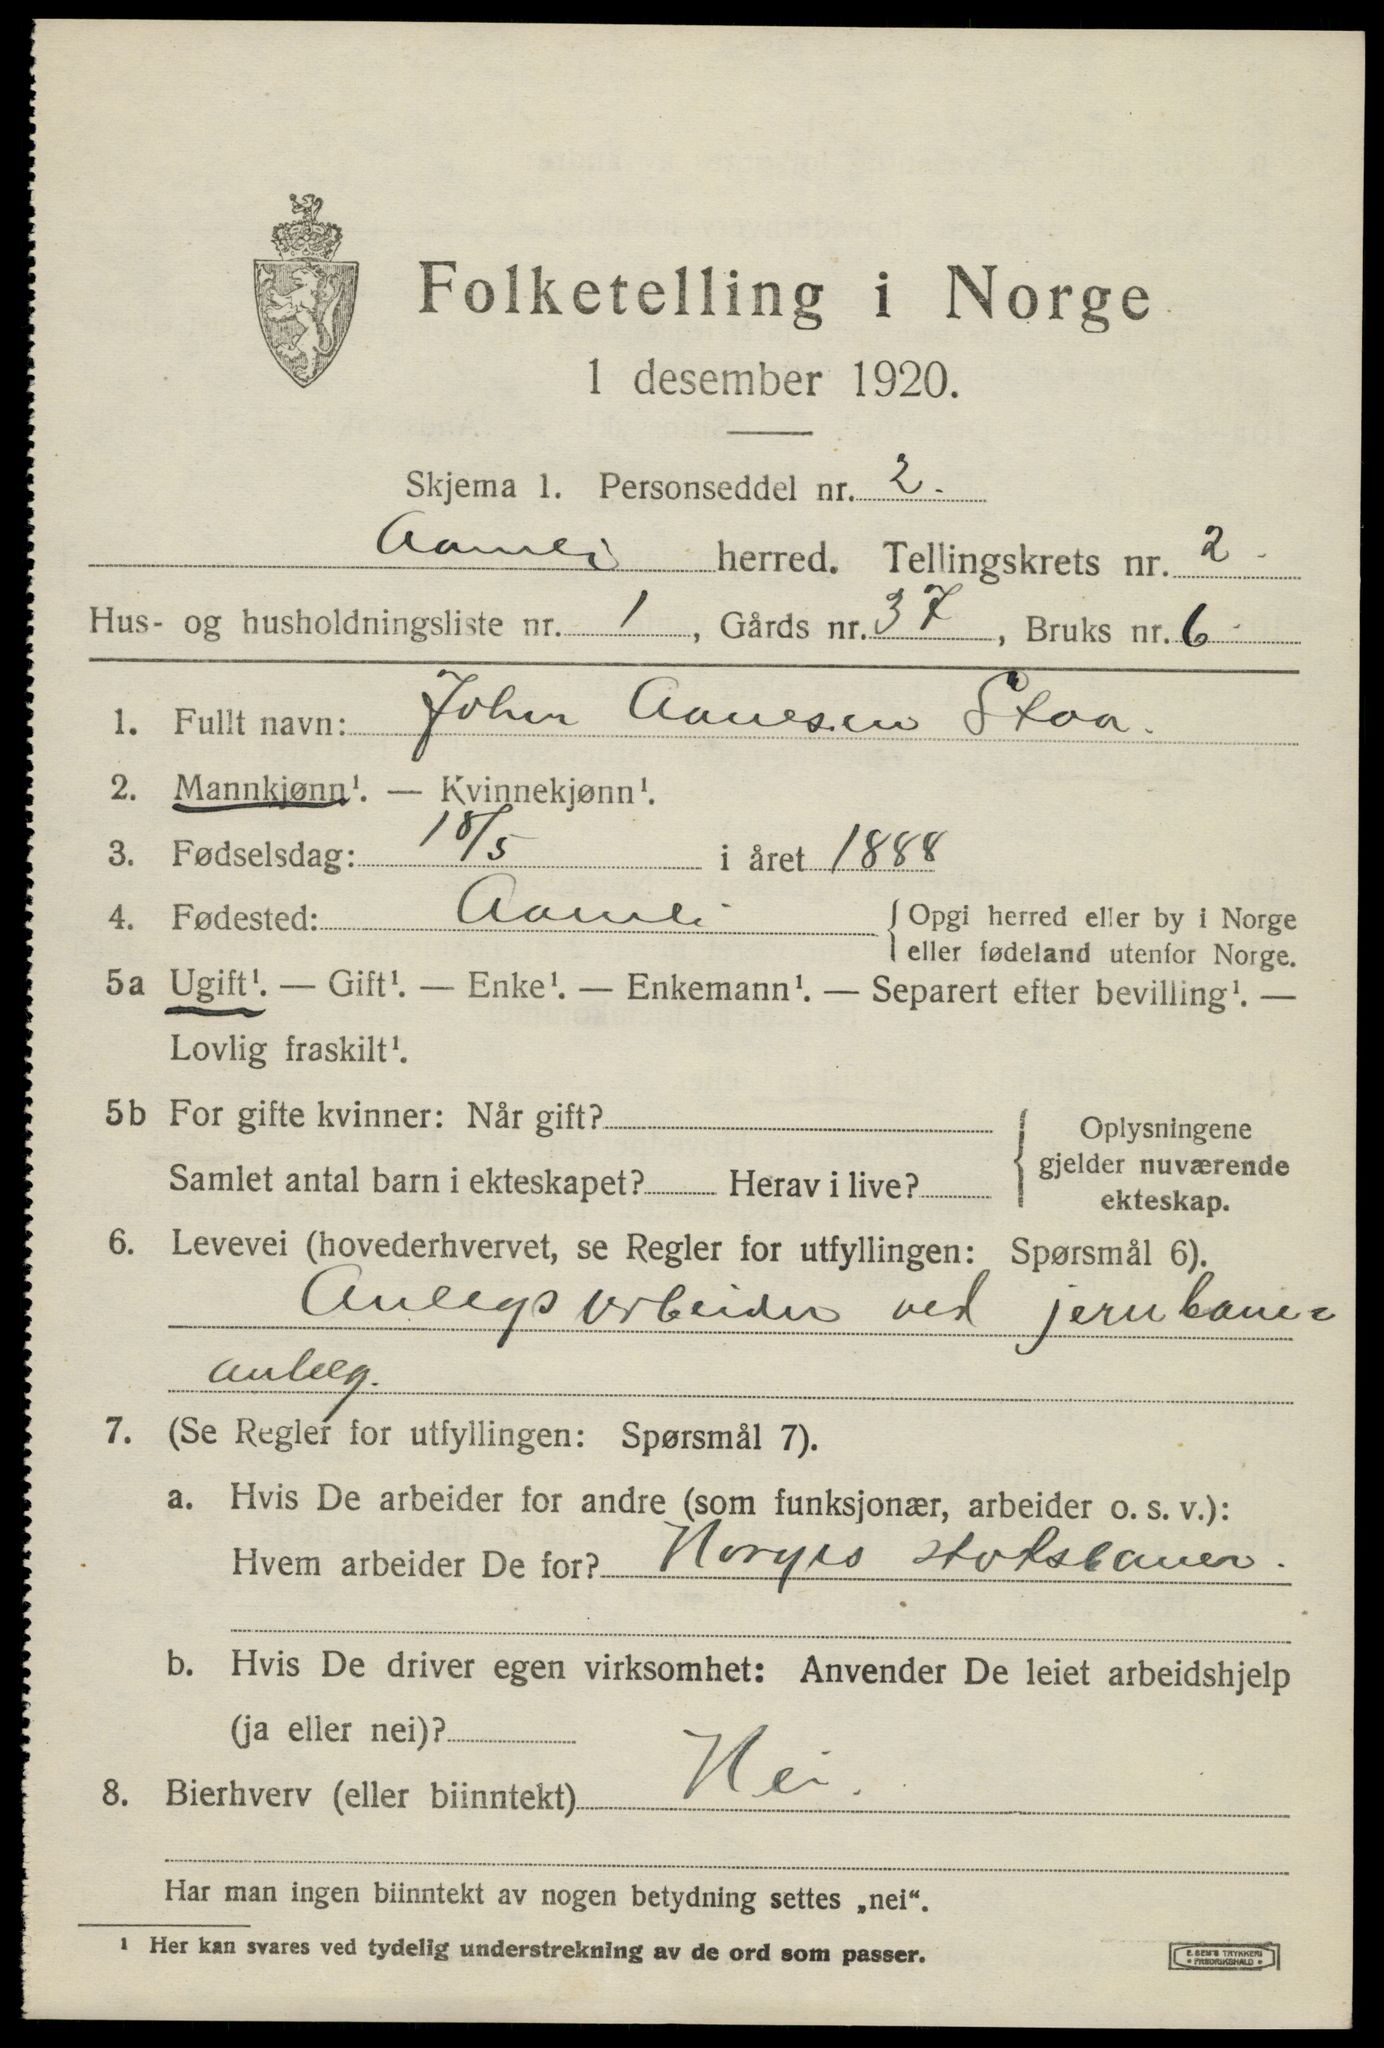 Folketelling i Norge
1 desember 1920.
Skjema 1. Personseddel nr. 2.
Aamli herred. Tellingskrets nr. 2
Hus- og husholdningsliste nr. 1, Gårds nr. 37, Bruks nr. 6
1. Fullt navn: John Aanesen Staa.
2. Mannkjønn¹. — Kvinnekjønn¹.
3. Fødselsdag: 18/5 i året 1888
4. Fødested: Aamli { Opgi herred eller by i Norge
eller fødeland utenfor Norge.
5a Ugift¹. — Gift¹. — Enke¹. — Enkemann¹. — Separert efter bevilling¹. —
Lovlig fraskilt¹.
5b For gifte kvinner: Når gift?
Samlet antal barn i ekteskapet? Herav i live?
{ Oplysningene
gjelder nuværende
ekteskap.
6. Levevei (hovederhvervet, se Regler for utfyllingen: Spørsmål 6).
Anlegsarbeider ved jernbane-
anlæg.
7. (Se Regler for utfyllingen: Spørsmål 7).
a. Hvis De arbeider for andre (som funksjonær, arbeider o. s. v.):
Hvem arbeider De for? Norges statsbaner.
b. Hvis De driver egen virksomhet: Anvender De leiet arbeidshjelp
(ja eller nei)?
8. Bierhverv (eller biinntekt) Nei.
Har man ingen biinntekt av nogen betydning settes „nei“.
¹ Her kan svares ved tydelig understrekning av de ord som passer.
E. SEM'S TRYKKERI
• FREDRIKSHALD •